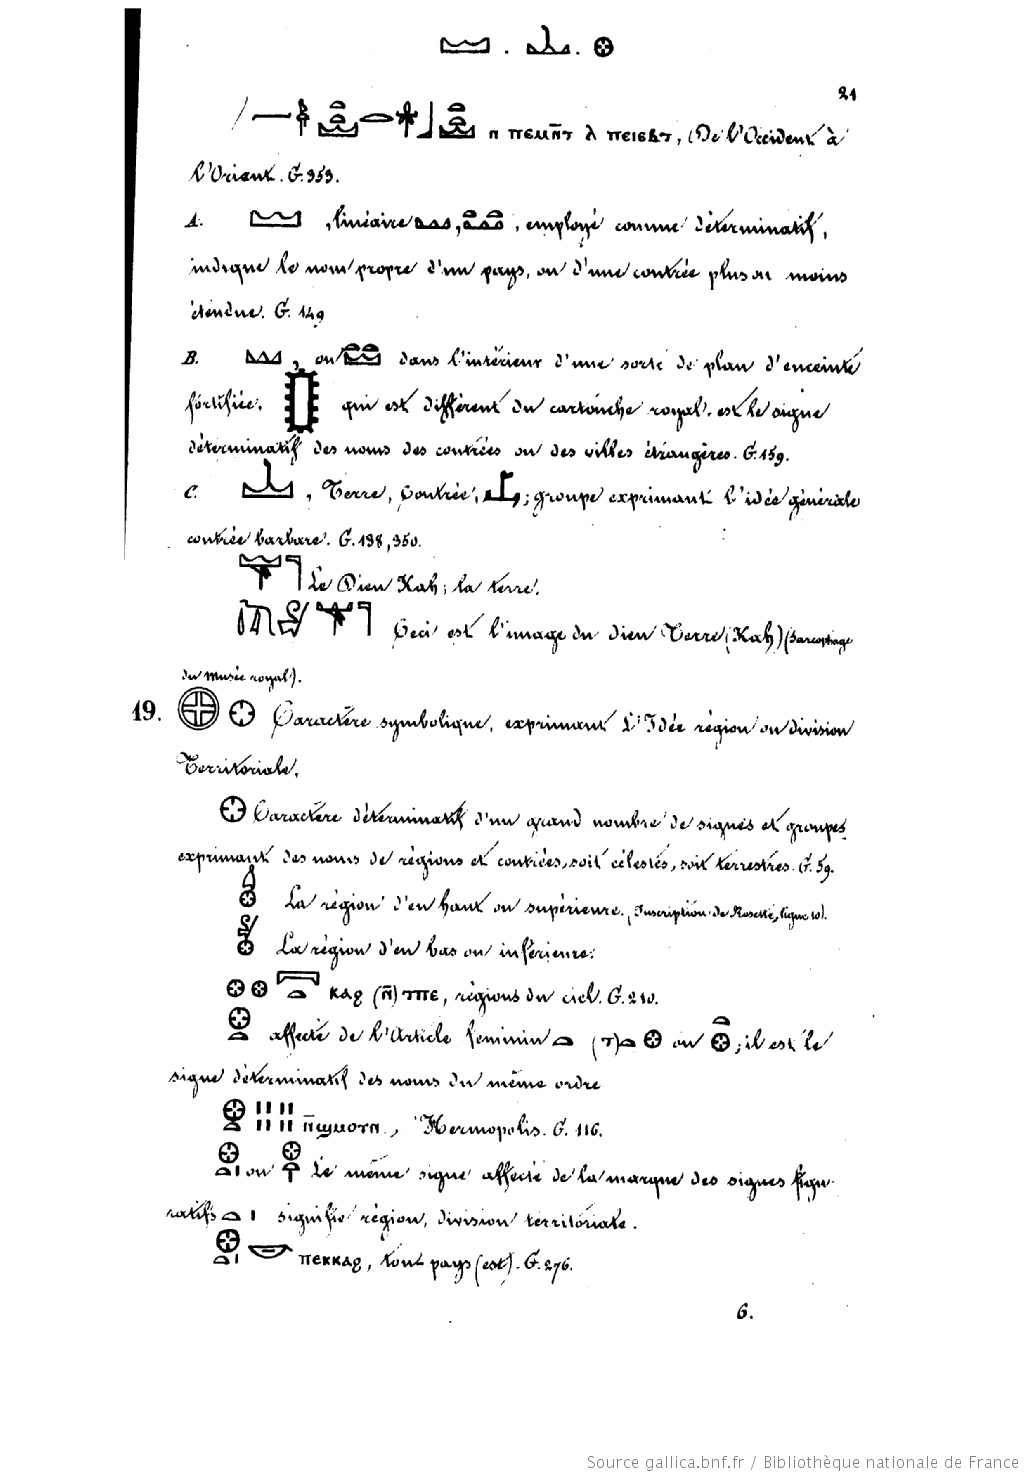 21
ⲛ ⲡⲉⲙⲛ̄ⲧ ⲗ ⲡⲉⲓⲉⲃⲧ, (De l'Occident à
l'Orient. G. 353.
A. , linéaire , , employé comme déterminatif,
indique le nom propre d'un pays, ou d'une contrée plus ou moins
étendue. G. 149
B. , ou dans l'intérieur d'une sorte de plan d'enceinte
fortifiée, qui est différent du cartouche royal, est le signe
déterminatif des noms des contrées ou des villes étrangères. G. 159.
C. , Terre, Contrée, ; groupe exprimant l'idée générale
contrée barbare. G. 138, 350.
Le Dieu Kah; la terre.
Ceci est l'image du dieu Terre (Kah) (Sarcophage
du Musée royal).
19. Caractère symbolique, exprimant L'Idée région ou division
Territoriale.
Caractère déterminatif d'un grand nombre de signes et groupes
exprimant des noms de régions et contrées, soit célestes, soit terrestres. G. 59.
La région d'en haut ou supérieure. (Inscription de Rosette, ligne 10).
La région d'en bas ou inférieure.
ⲕⲁϩ (ⲛ̄) ⲧⲡⲉ, régions du ciel. G. 210.
affecté de l'Article féminin (ⲧ) ou ; il est le
signe déterminatif des noms du même ordre
ⲡ̄ϣⲙⲟⲩⲛ, Hermopolis. G. 116.
ou Le même signe affecté de la marque des signes figu-
ratifs signifie région, division territoriale.
ⲡⲉⲕⲕⲁϩ, tout pays (est). G. 276.
6.
Source gallica.bnf.fr / Bibliothèque nationale de France